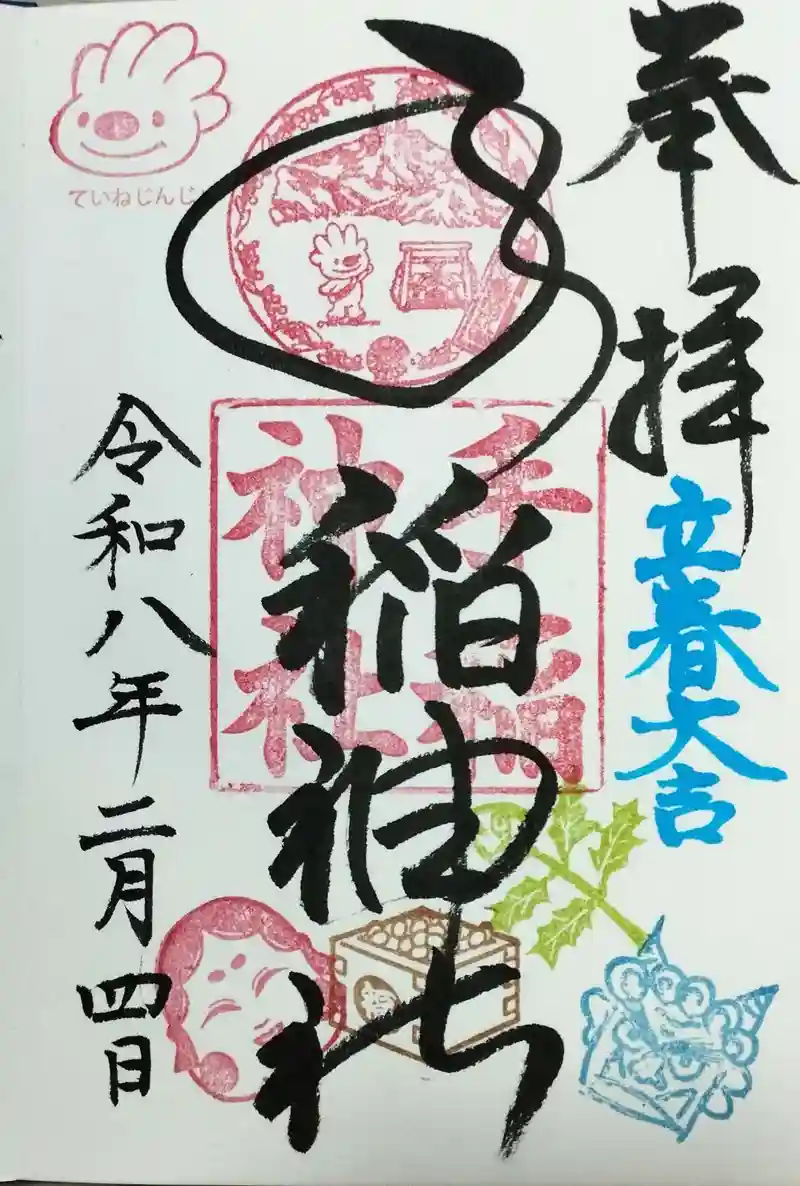 奉拝
立春大吉
手稲神社
手稲
神社
福
令和八年二月四日
ていねじんじ